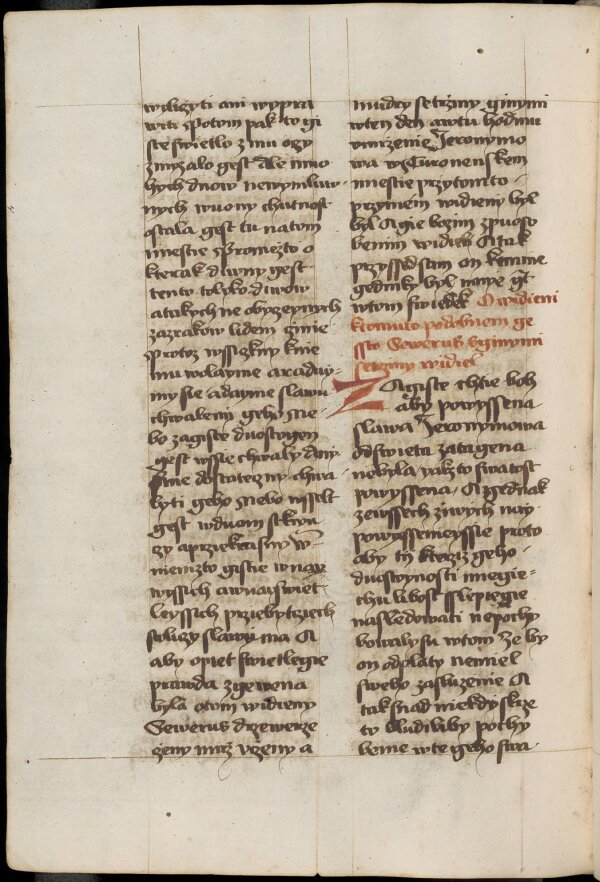 wyliczyti ani wypra
witi Potom pak to gi
ste swietlo z mu oczy
zmyzalo gest Ale mno
hych dnow newymluw
nych wuony chutnost
ostala gest tu na tom
miestie Promezto o
kterak diwny gest
tento tolyko diwow
a takych ne obyczeynych
zazrakow lidem czinie
Protoz wssiczkny knie
mu wolayme a radug
my sie a dayme slawu
chwalem geho Ne
bo zagiste duostogen
gest wssie chwaly Any
sme dostateczny chwa
lyti geho Nebo wsselt
gest wduom stkwu
czy a prziekrasny W
niemzto gistie w nay
wyssich a w nayswiet
leyssich przebytciech
stoliczy slawy ma A
aby opiet swietlegie
prawda zgewena
byla o tom widieny
Sewerus drzewerze
czeny muz vczeny a
mudry se trzmy ginymi
w ten den a w tu hodinu
vmrzenie Jeronymo
wa w Turonenskem
miestie przytomto
przymem widieny byl
byl A gie bozim zpuoso
benim widiel A tak
przyssed sam on kemne
gedinky byl nawe
w tom swiedek O widieni
ktomuto podobnem ge
ssto Sewerus s ginymi
se trzmy widiel
Zagiste chtie boh
aby powyssena
slawa Jeronymowa
od swieta zatagena
nebyla yakzto swatost
powyssena A gednak
ze wssech zywych nay
powyssenieyssie proto
aby ty kterziz geho
duostoynosti mnegie
chu libost sslepiegie
nasledowati nepochy
bowaly su w tom Ze by
on odplaty nemiel
sweho zasluzenie A
tak snad niekdy skrze
to bludiliby pochy
benie w te geho swa